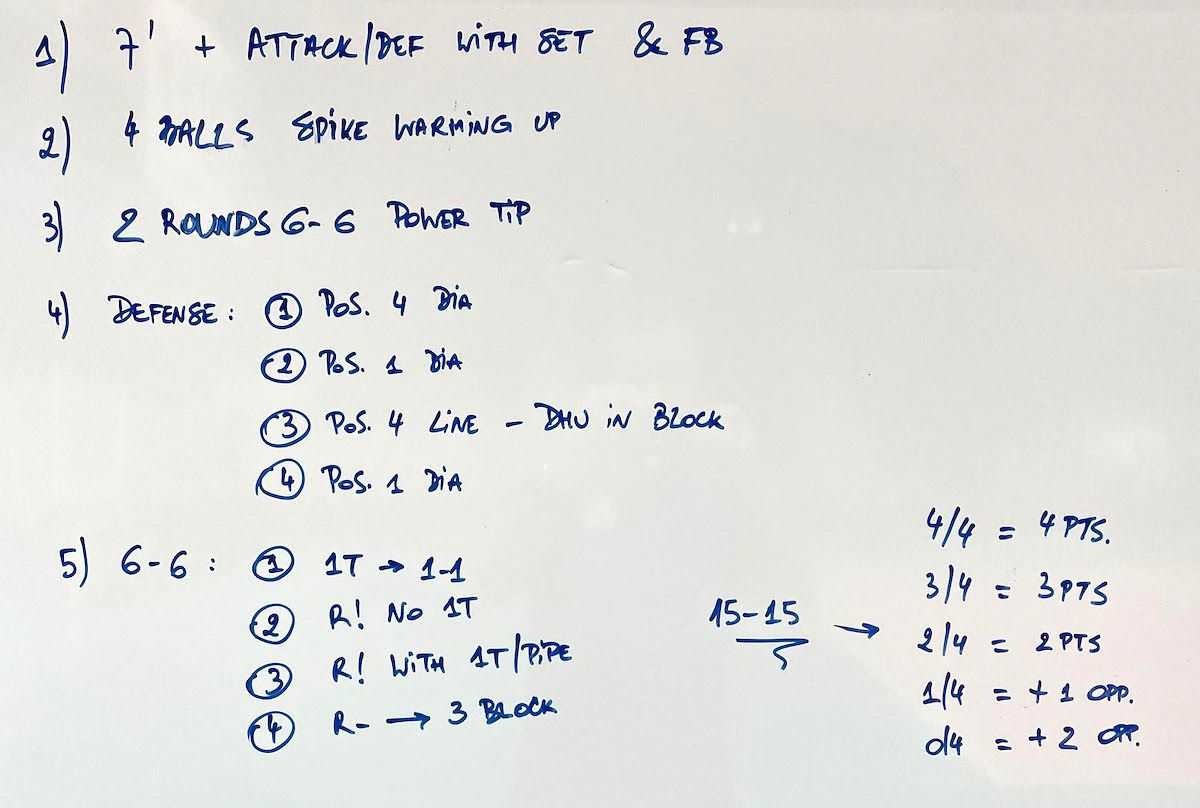 1) 7' + ATTACK/DEF WITH SET & FB
2) 4 BALLS SPIKE WARMING UP
3) 2 ROUNDS 6-6 POWER TIP
4) DEFENSE: ① POS. 4 DIA
② POS. 1 DIA
③ POS. 4 LINE - DHU IN BLOCK
④ POS. 1 DIA
5) 6-6: ① 1T → 1-1
② R! NO 1T
③ R! WITH 1T/PIPE
④ R- → 3 BLOCK
15-15 →
4/4 = 4 PTS.
3/4 = 3 PTS
2/4 = 2 PTS
1/4 = + 1 OPP.
0/4 = + 2 OPP.